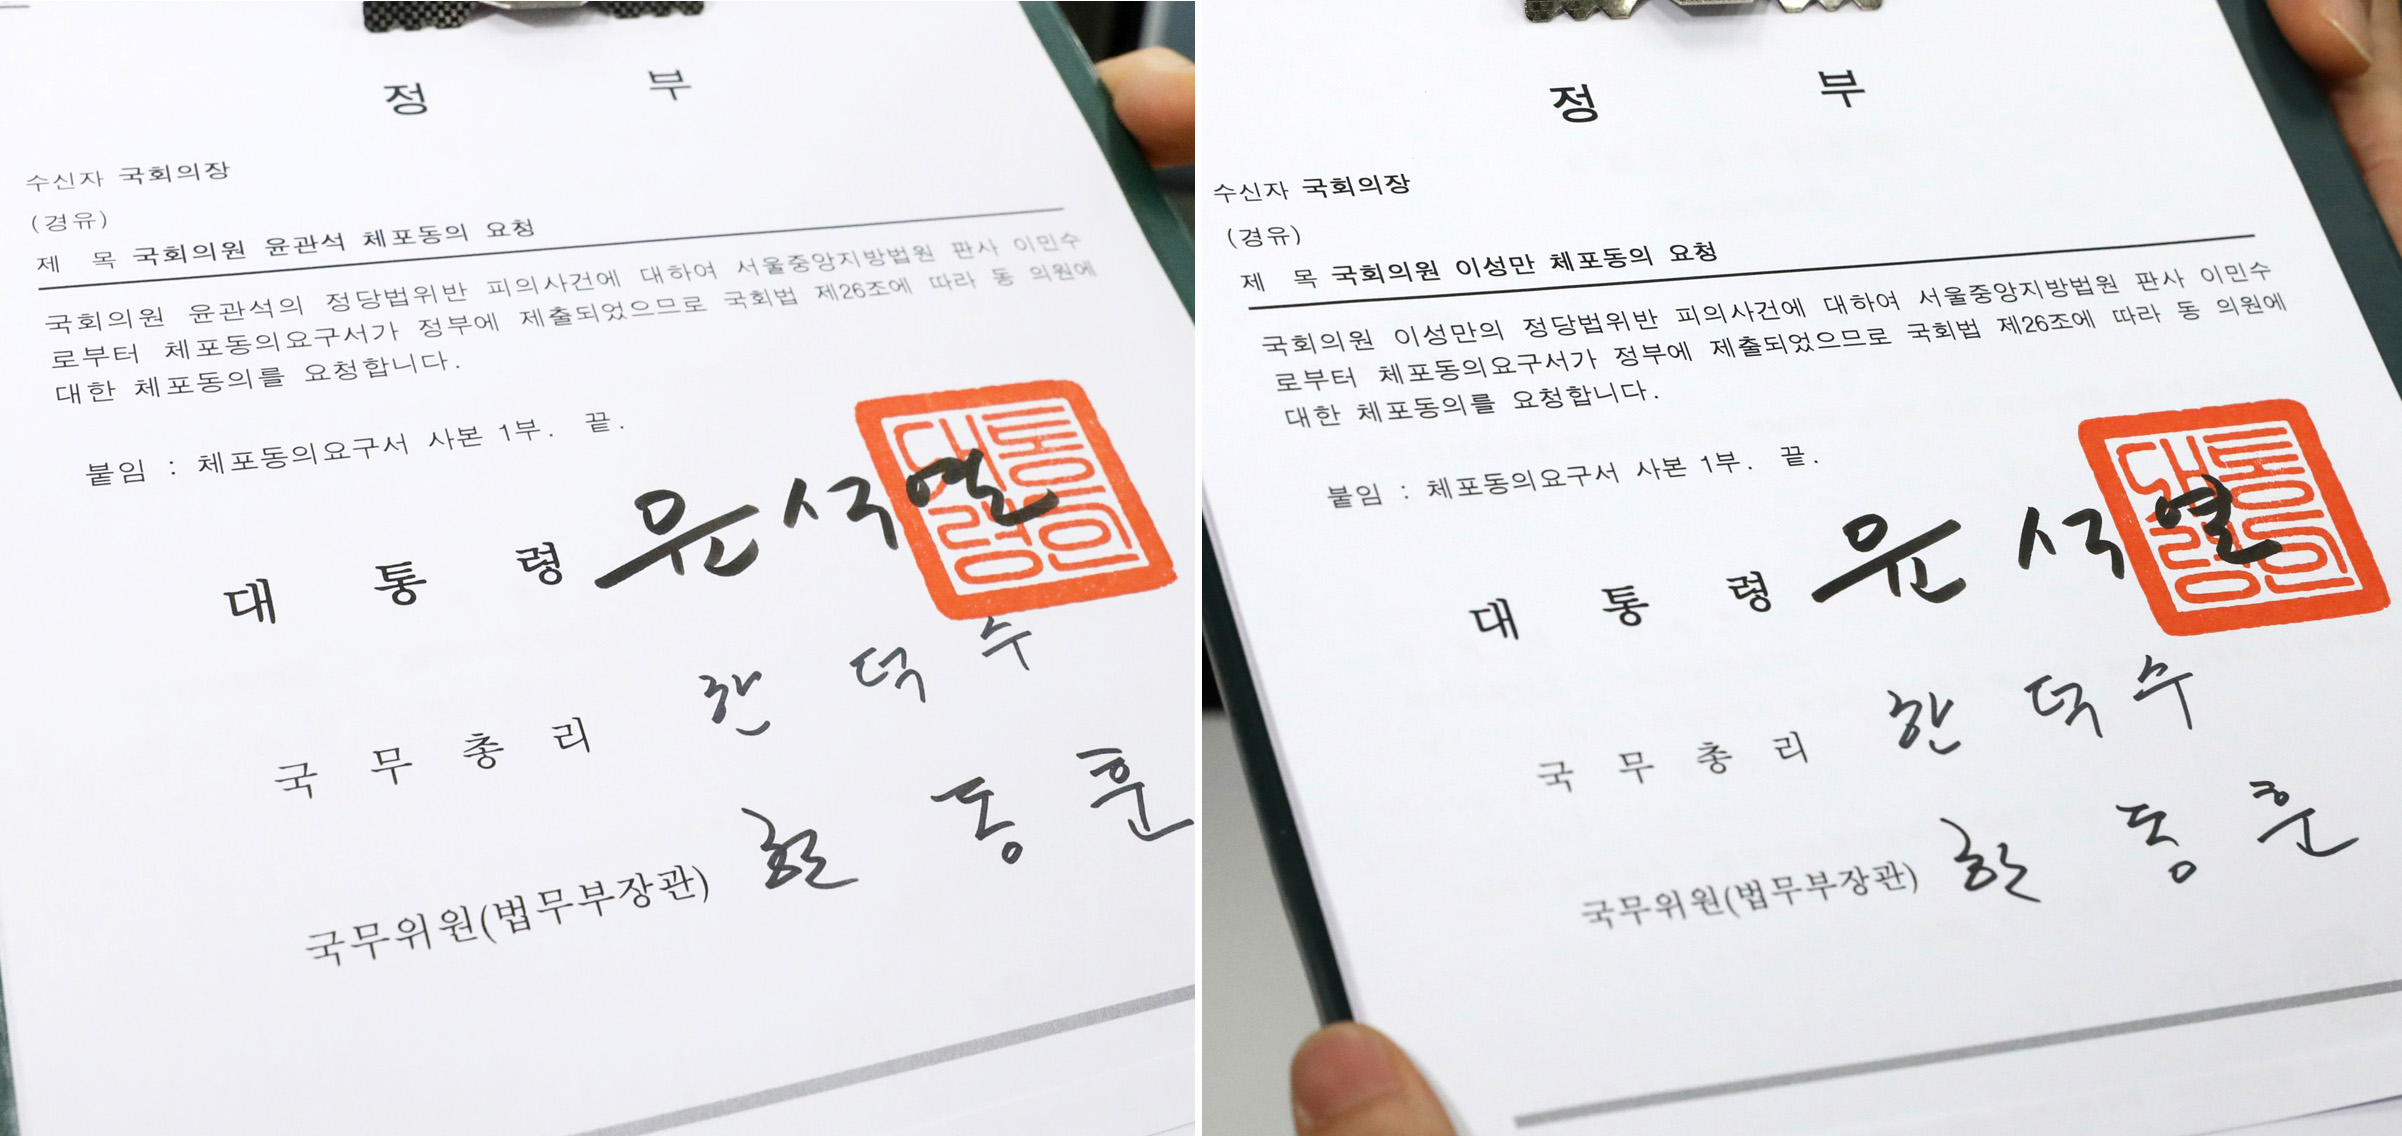 정 부
수신자 국회의장
(경유)
제 목 국회의원 윤관석 체포동의 요청
국회의원 윤관석의 정당법위반 피의사건에 대하여 서울중앙지방법원 판사 이민수
로부터 체포동의요구서가 정부에 제출되었으므로 국회법 제26조에 따라 동 의원에
대한 체포동의를 요청합니다.
붙임 : 체포동의요구서 사본 1부. 끝.
대통령 윤석열
대통령인
국무총리 한덕수
국무위원(법무부장관) 한동훈
정 부
수신자 국회의장
(경유)
제 목 국회의원 이성만 체포동의 요청
국회의원 이성만의 정당법위반 피의사건에 대하여 서울중앙지방법원 판사 이민수
로부터 체포동의요구서가 정부에 제출되었으므로 국회법 제26조에 따라 동 의원에
대한 체포동의를 요청합니다.
붙임 : 체포동의요구서 사본 1부. 끝.
대통령 윤석열
대통령인
국무총리 한덕수
국무위원(법무부장관) 한동훈